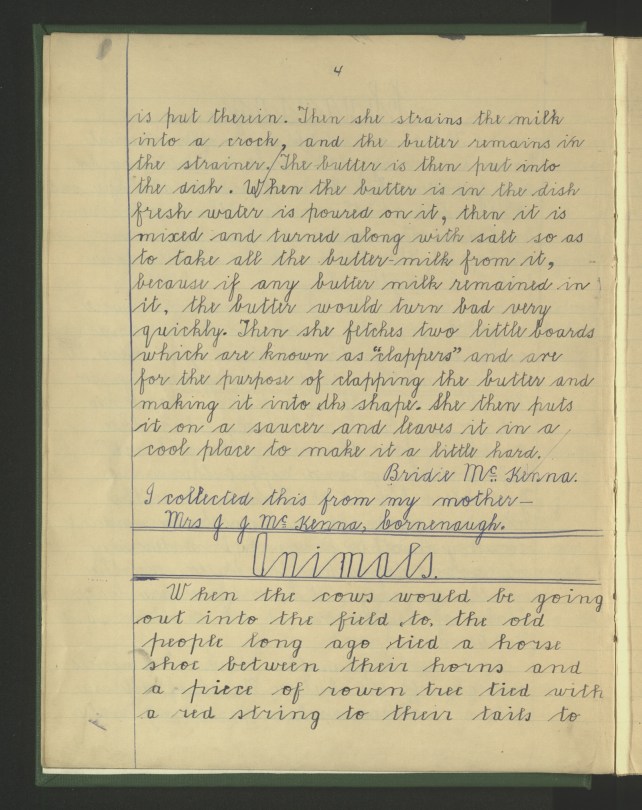 4
is put therein. Then she strains the milk
into a crock, and the butter remains in
the strainer. The butter is then put into
the dish. When the butter is in the dish
fresh water is poured on it, then it is
mixed and turned along with salt so as
to take all the butter-milk from it,
because if any butter milk remained in
it, the butter would turn bad very
quickly. Then she fetches two little boards
which are known as "clappers" and are
for the purpose of clapping the butter and
making it into shape. She then puts
it on a saucer and leaves it in a
cool place to make it a little hard.
Bridie Mc Kenna.
I collected this from my mother-
Mrs J J Mc Kenna, Cornenaugh.
Animals.
When the cows would be going
out into the field to, the old
people long ago tied a horse
shoe between their horns and
a piece of rowen tree tied with
a red string to their tails to